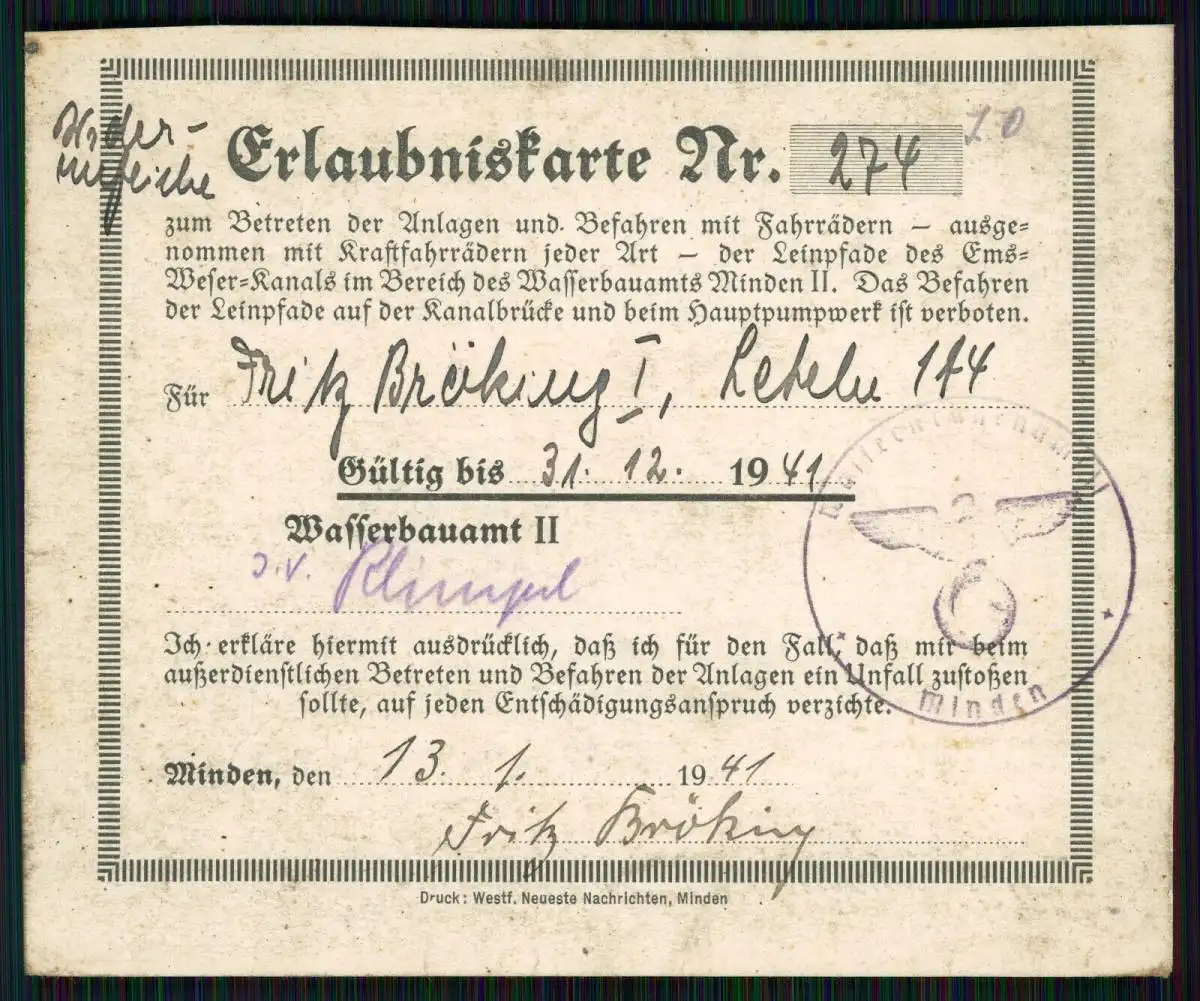 Erlaubniskarte Nr. 274
10
zum Betreten der Anlagen und Befahren mit Fahrrädern — ausge-
nommen mit Kraftfahrrädern jeder Art — der Leinpfade des Ems-
Weser-Kanals im Bereich des Wasserbauamts Minden II. Das Befahren
der Leinpfade auf der Kanalbrücke und beim Hauptpumpwerk ist verboten.
Für Fritz Bröking I, Leteln 144
Gültig bis 31. 12. 1941
Wasserbauamt II
I.V. Klimpel
Ich erkläre hiermit ausdrücklich, daß ich für den Fall, daß mir beim
außerdienstlichen Betreten und Befahren der Anlagen ein Unfall zustoßen
sollte, auf jeden Entschädigungsanspruch verzichte.
Minden
Minden, den 13. 1. 1941
Fritz Bröking
Druck: Westf. Neueste Nachrichten, Minden